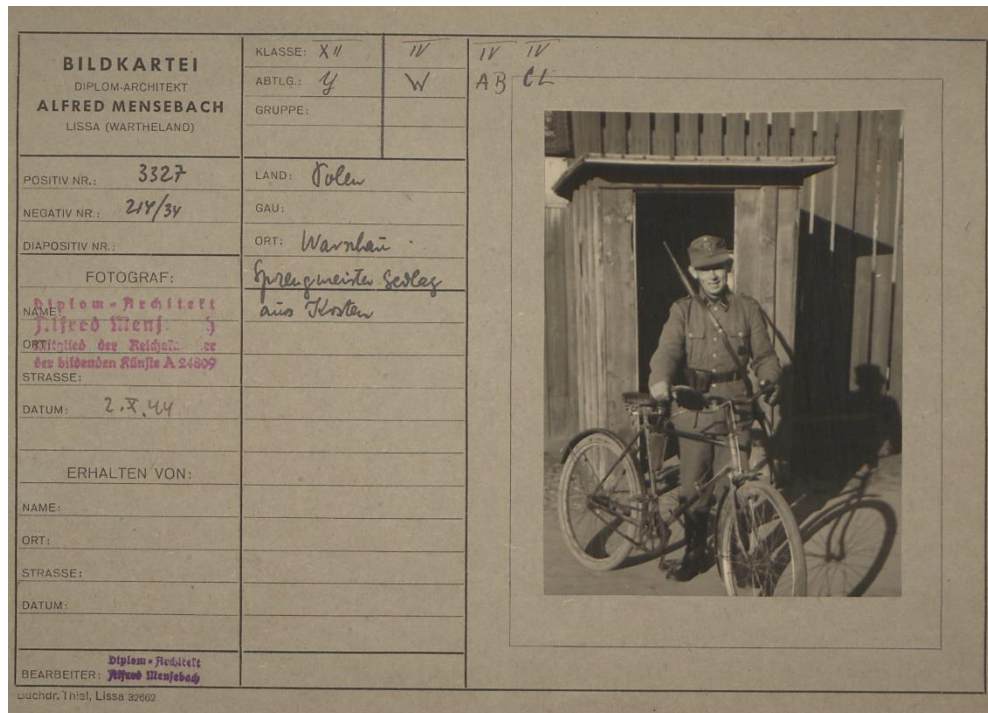 BILDKARTEI
DIPLOM-ARCHITEKT
ALFRED MENSEBACH
LISSA (WARTHELAND)
KLASSE: XII IV IV IV
ABTLG.: y W AB CL
GRUPPE:
POSITIV NR.: 3327
NEGATIV NR.: 214/34
DIAPOSITIV NR.:
LAND: Polen
GAU:
ORT: Warschau
Sprengmeister Gedlag
aus Kosten
FOTOGRAF:
NAME:
Diplom-Architekt
Alfred Mensebach
ORT:
Mitglied der
der bildenden Künste A 24809
STRASSE:
DATUM: 2.X.44
ERHALTEN VON:
NAME:
ORT:
STRASSE:
DATUM:
BEARBEITER: Diplom-Architekt
Alfred Mensebach
Buchdr. Thiel, Lissa 32662